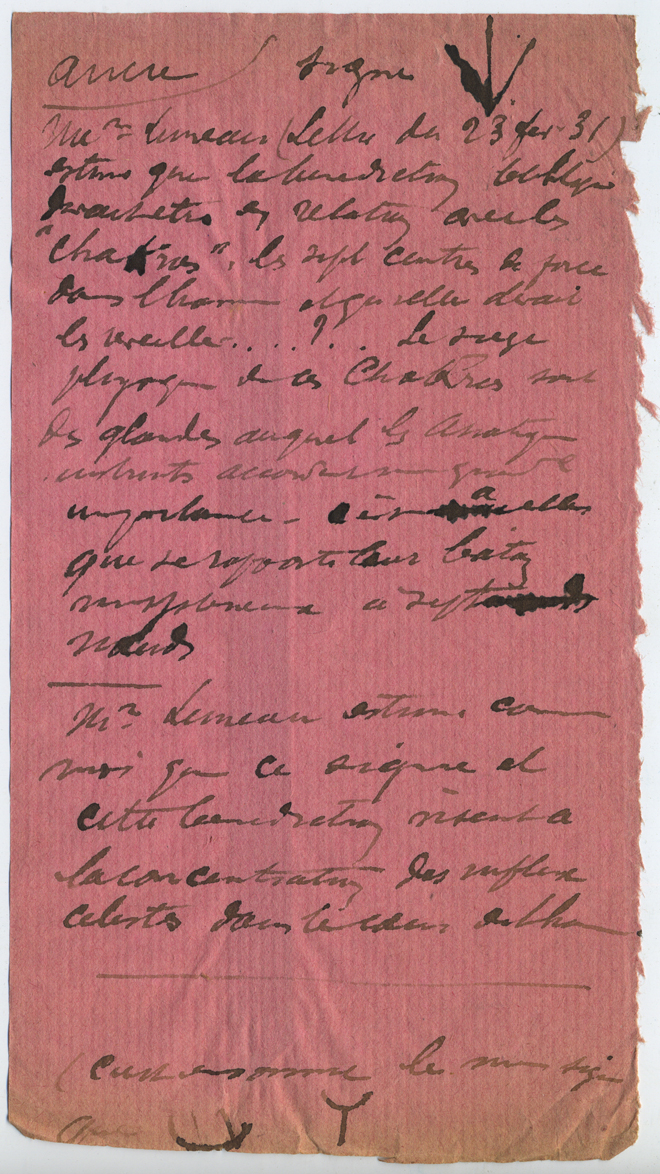 signe
Mr Lumeau (Lettre du 23 fev 31)
estime que la benediction
en relation avec les
"chakras", les sept centres de force
dans lhomme et quelle devait
les reveiller....?.. Le siege
physique de ces ChaKras sont
des glandes auquel les
accordent une grande
importance - a elles
que se rapporte leur baton
a sept
nœuds
Mr Lumeau estime comme
moi que ce signe et
cette benediction visent a
la concentration des influx
celestes dans le cœur de lho
(cest en somme le meme signe
que